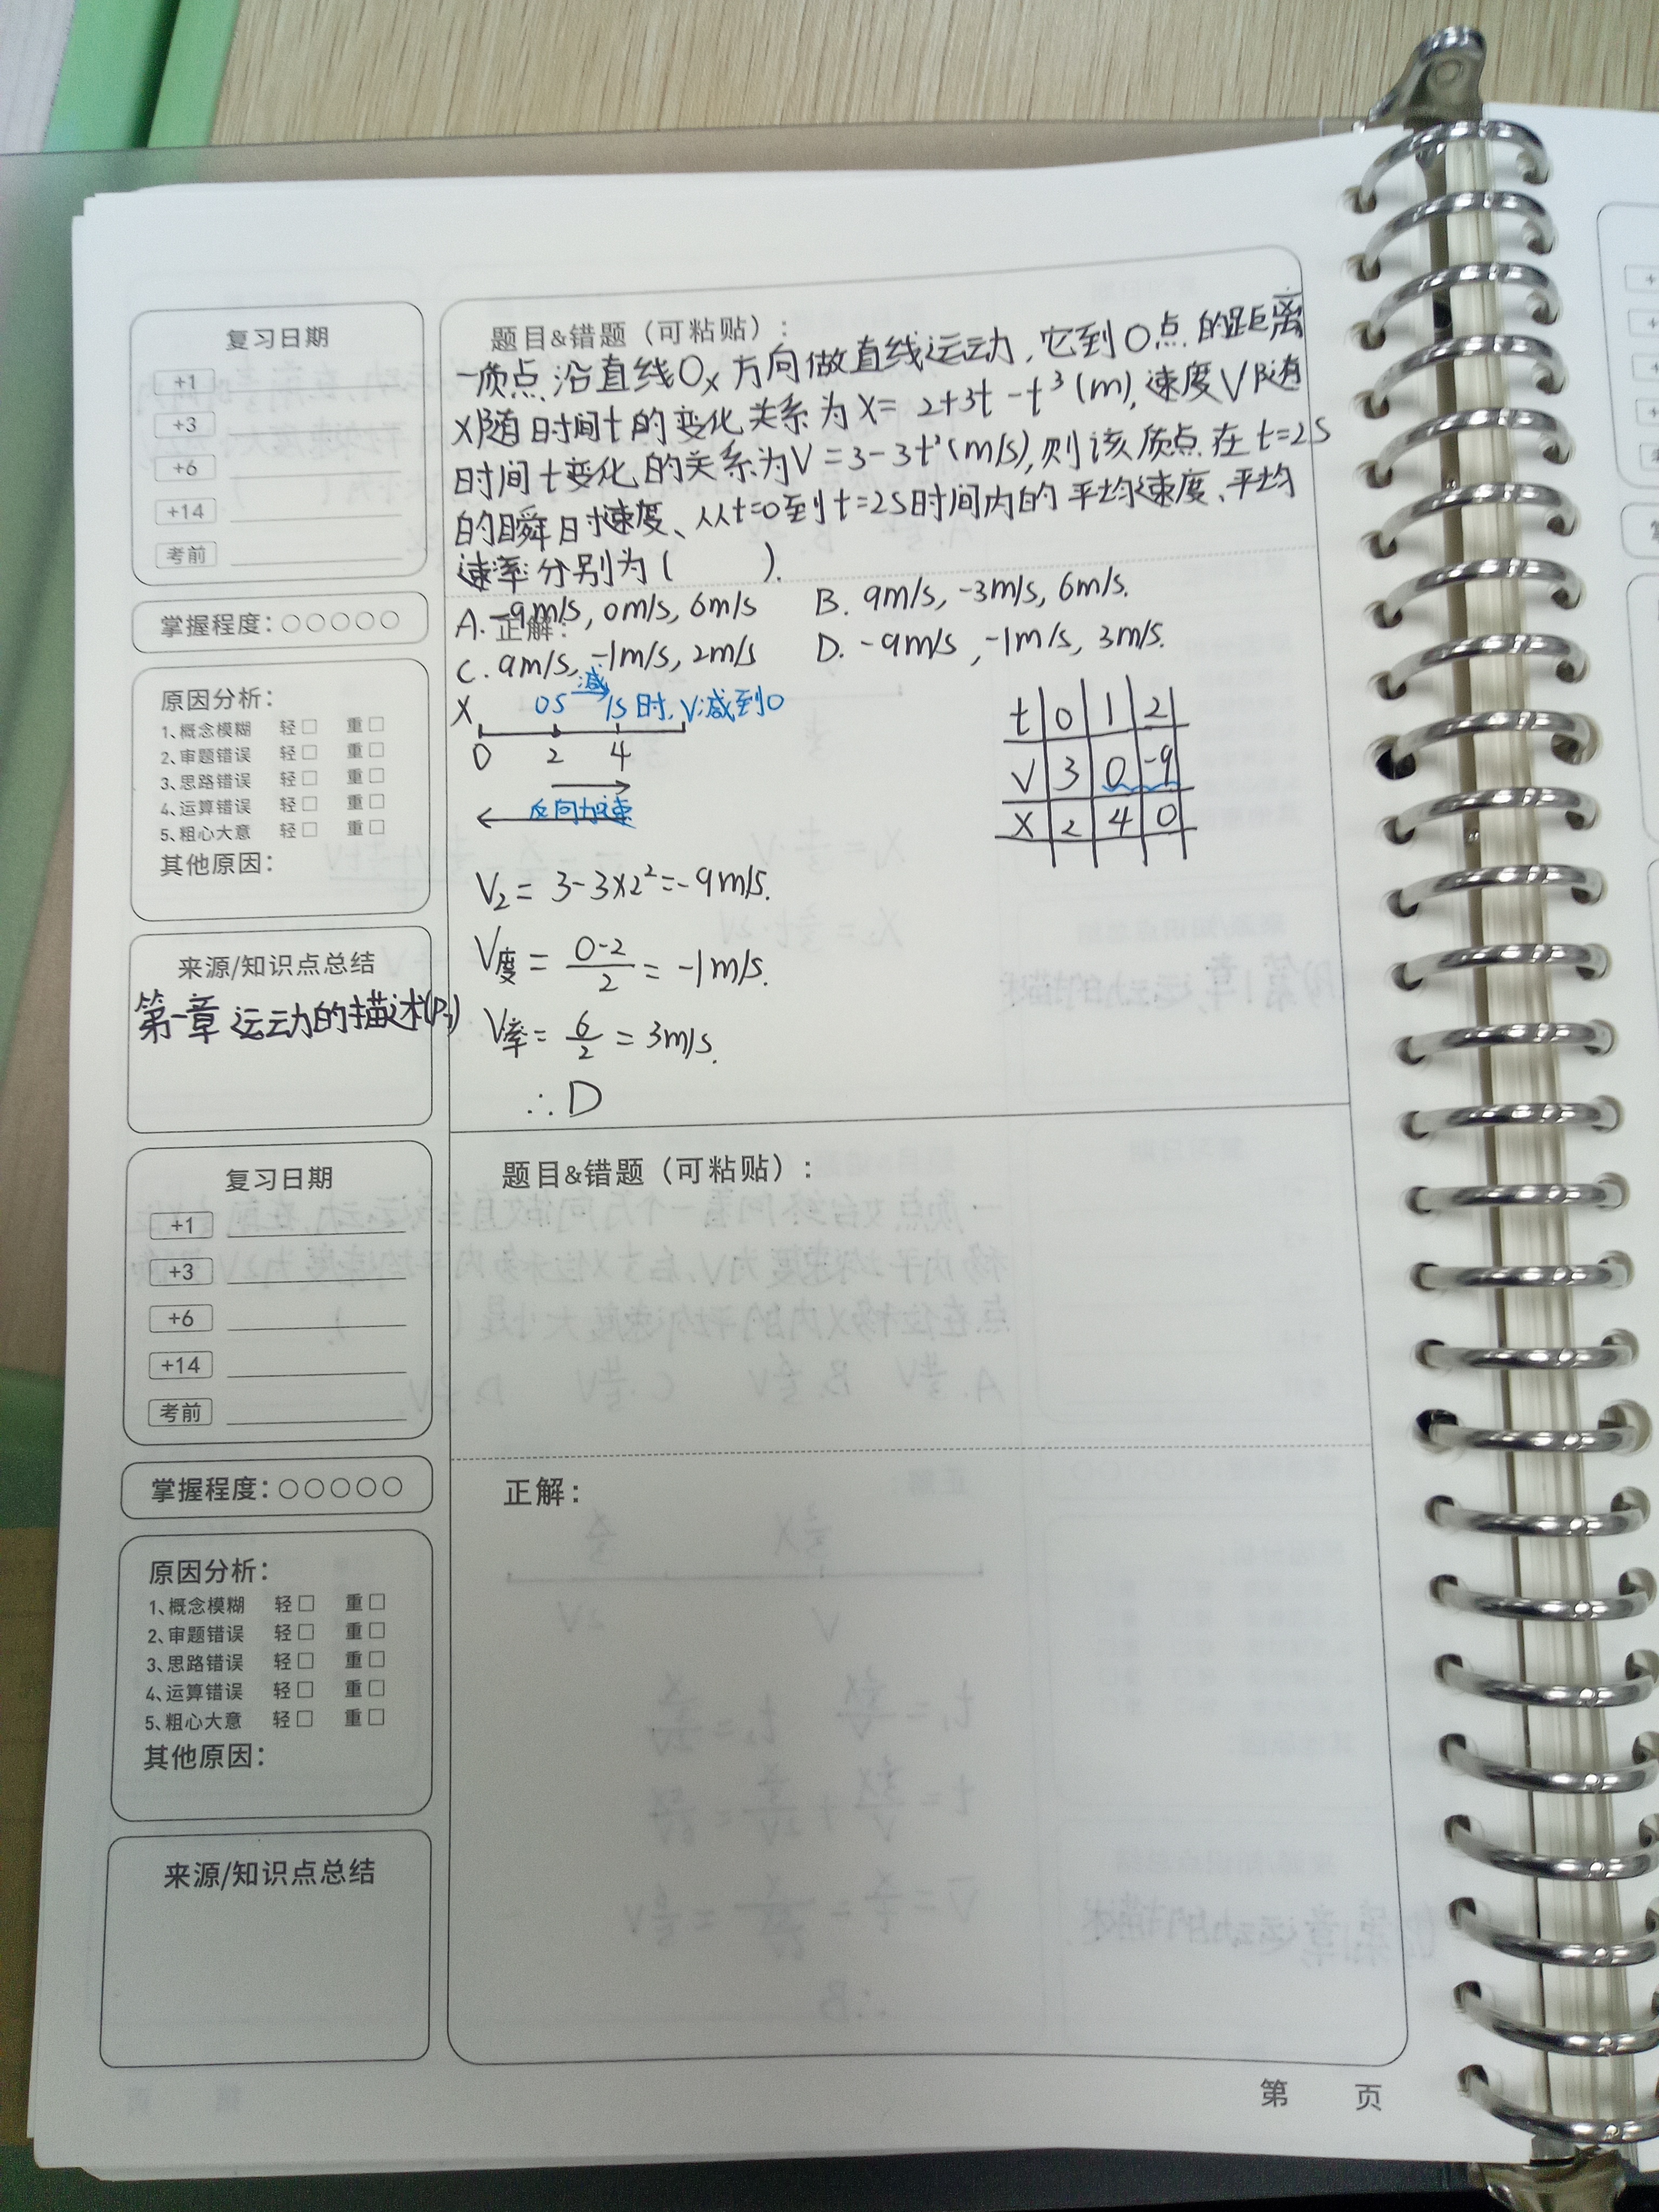 复习日期
+1
+3
+6
+14
考前
掌握程度：○○○○○
原因分析：
1、概念模糊 轻□ 重□
2、审题错误 轻□ 重□
3、思路错误 轻□ 重□
4、运算错误 轻□ 重□
5、粗心大意 轻□ 重□
其他原因：
来源/知识点总结
第一章 运动的描述(P3)
题目&错题（可粘贴）：
一质点沿直线Ox方向做直线运动，它到O点的距离
x随时间t的变化关系为x= 2+3t-t³(m)，速度V随
时间t变化的关系为V=3-3t²(m/s)，则该质点在t=2s
的瞬时速度、从t=0到t=2s时间内的平均速度、平均
速率分别为( ).
A. -9m/s, 0m/s, 6m/s B. 9m/s, -3m/s, 6m/s.
正解：
C. 9m/s, -1m/s, 2m/s D. -9m/s, -1m/s, 3m/s.
减
X 0s 1s时,V减到0
0 2 4
反向加速
t 0 1 2
V 3 0 -9
X 2 4 0
V₂= 3-3×2²=-9m/s.
V度= 0-2/2 = -1m/s.
V率= 6/2 = 3m/s.
∴D
复习日期
+1
+3
+6
+14
考前
掌握程度：○○○○○
原因分析：
1、概念模糊 轻□ 重□
2、审题错误 轻□ 重□
3、思路错误 轻□ 重□
4、运算错误 轻□ 重□
5、粗心大意 轻□ 重□
其他原因：
来源/知识点总结
题目&错题（可粘贴）：
正解：
第 页